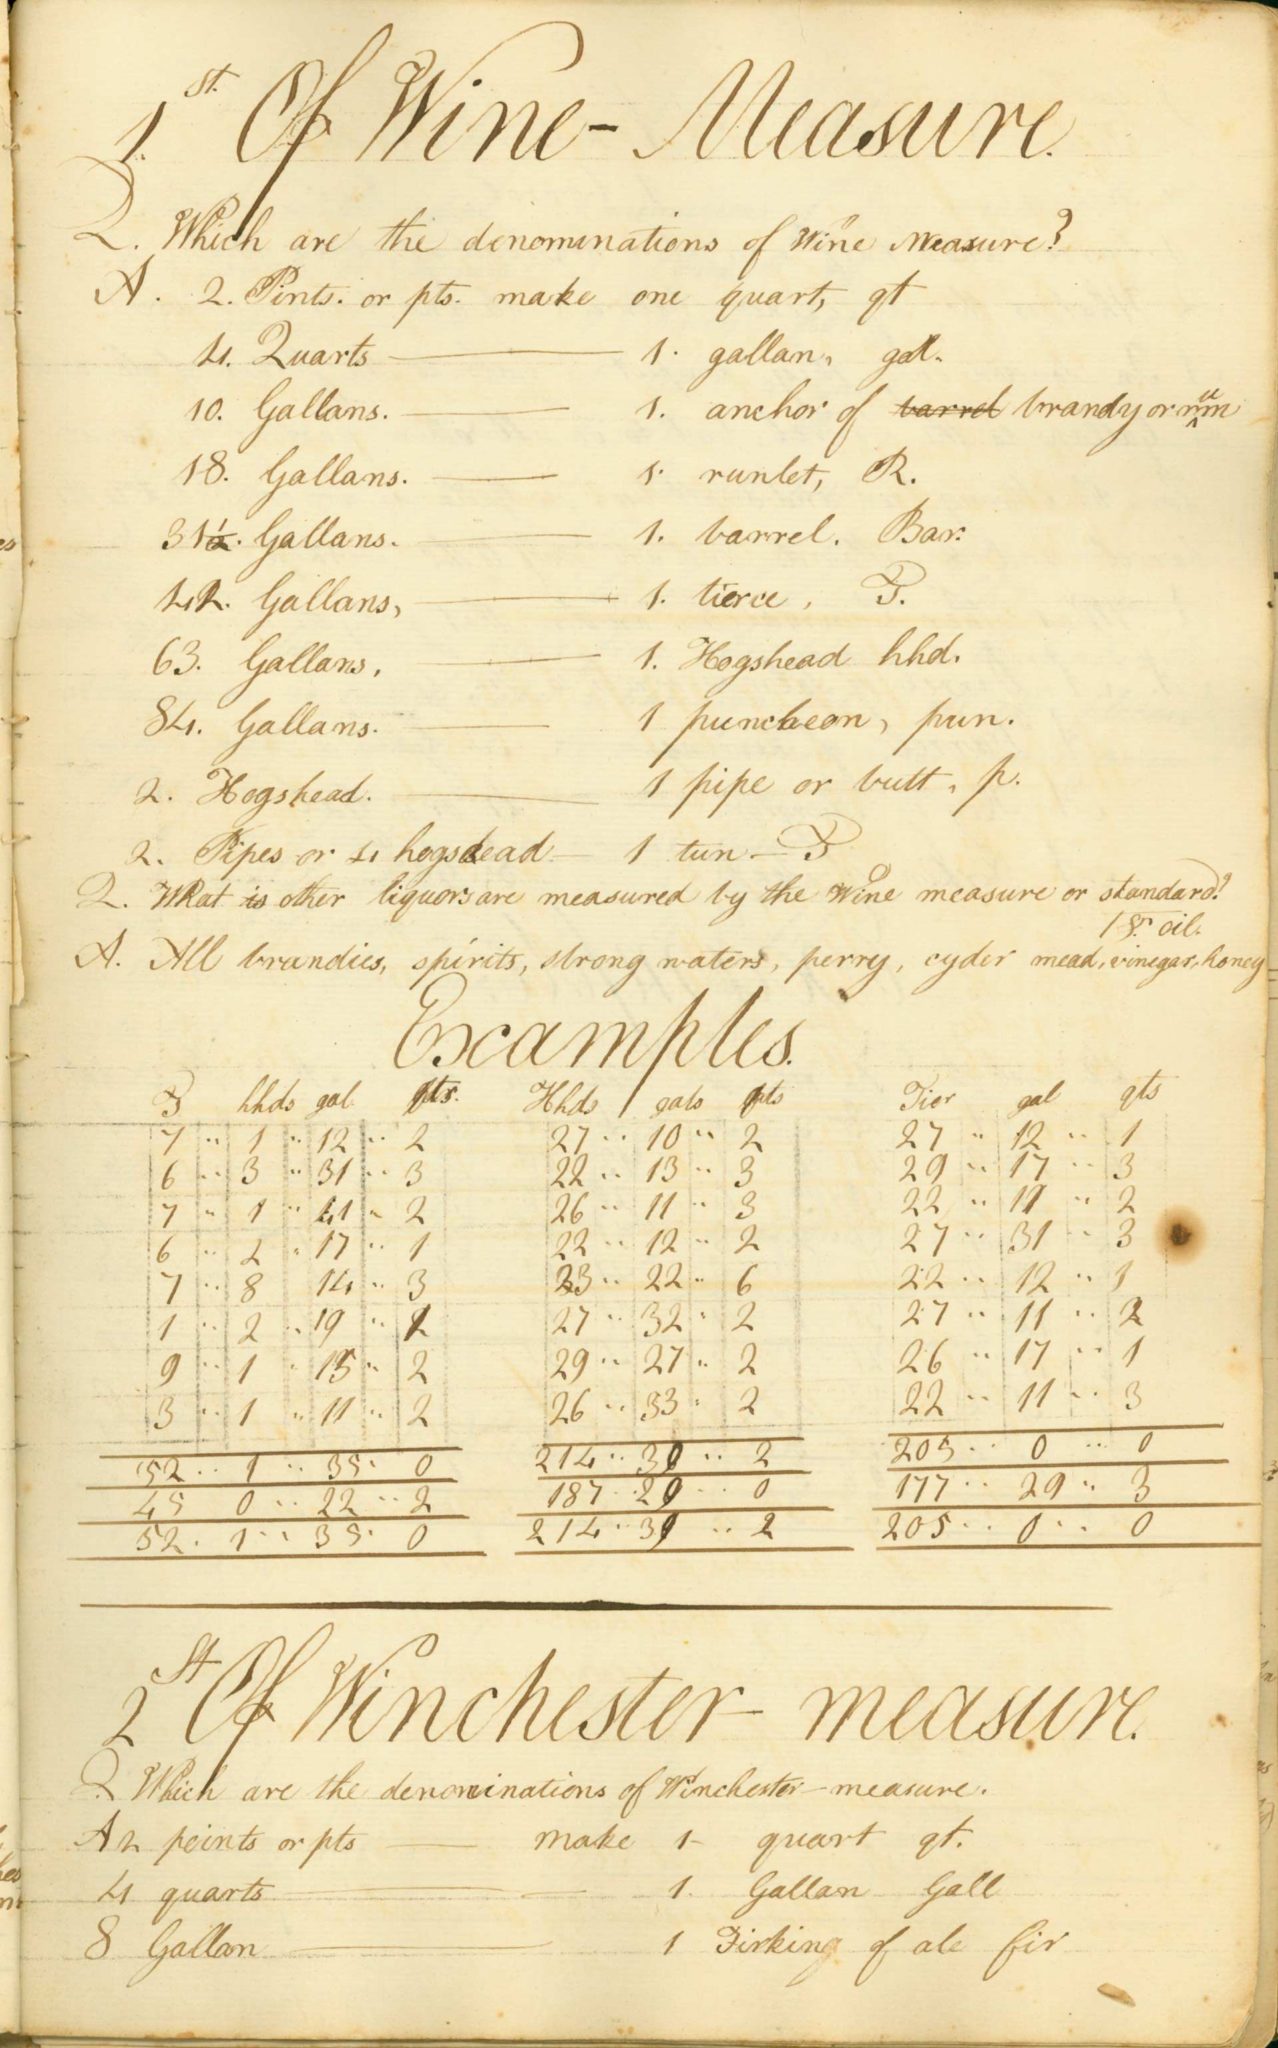 1st. Of Wine-Measure.
Q. Which are the denominations of Wine Measure?
A. 2. Pints. or pts. make one quart, qt
4. Quarts — 1. gallan, gal.
10. Gallans. — 1. anchor of barrel brandy or rum
18. Gallans. — 1. runlet, R.
31½. Gallans. — 1. barrel. Bar:
42. Gallans, — 1. tierce, T.
63. Gallans, — 1. Hogshead hhd.
84. Gallans. — 1 puncheon, pun.
2. Hogshead. — 1 pipe or butt, p.
2. Pipes or 4 hogshead — 1 tun — T
Q. What is other liquors are measured by the Wine measure or standard?
oil.
A. All brandies, spirits, strong waters, perry, cyder mead, vinegar, honey
Examples.
T hhds gal qts. Hhds gals pts Tier gal qts
7 .. 1 .. 12 .. 2 27 .. 10 .. 2 27 .. 12 .. 1
6 .. 3 .. 31 .. 3 22 .. 13 .. 3 29 .. 17 .. 3
7 .. 1 .. 41 .. 2 26 .. 11 .. 3 22 .. 11 .. 2
6 .. 2 .. 17 .. 1 22 .. 12 .. 2 27 .. 31 .. 3
7 .. 8 14 .. 3 23 .. 22 .. 6 22 .. 12 .. 1
1 .. 2 .. 19 .. 27 .. 32 .. 2 27 .. 11 .. 2
9 .. 1 .. 15 .. 2 29 .. 27 .. 2 26 .. 17 .. 1
3 .. 1 .. 11 .. 2 26 .. 33 .. 2 22 .. 11 .. 3
52 .. 1 .. 35 . 0 214 .. .. 2 205 .. 0 .. 0
45 0 .. 22 .. 2 187 .. .. 0 177 .. 29 .. 3
52 . 1 .. 35 . 0 214 .. .. 2 205 .. 0 .. 0
2st Of Winchester-measure.
Q Which are the denominations of Winchester-measure.
A 2 peints or pts — make 1- quart qt.
4 quarts — 1. Gallan Gall
8 Gallan — 1 Firking of ale fir